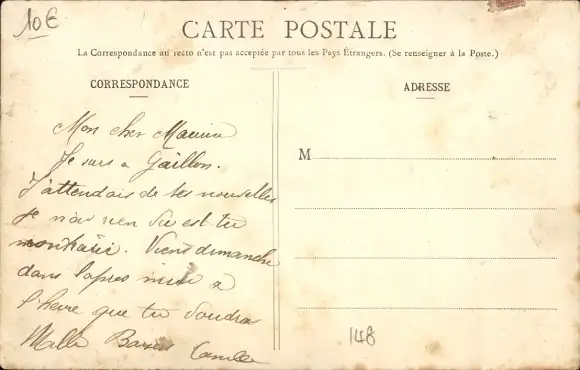 10€
CARTE POSTALE
La Correspondance au recto n'est pas acceptée par tous les Pays Étrangers. (Se renseigner à la Poste.)
CORRESPONDANCE
Mon cher Maurice
Je suis a Gaillon.
J'attendais de tes nouvelles
Je n'ai rien est tu
Viens dimanche
dans l'apres midi a
l'heure que tu voudras
Mille Camille
ADRESSE
M
148